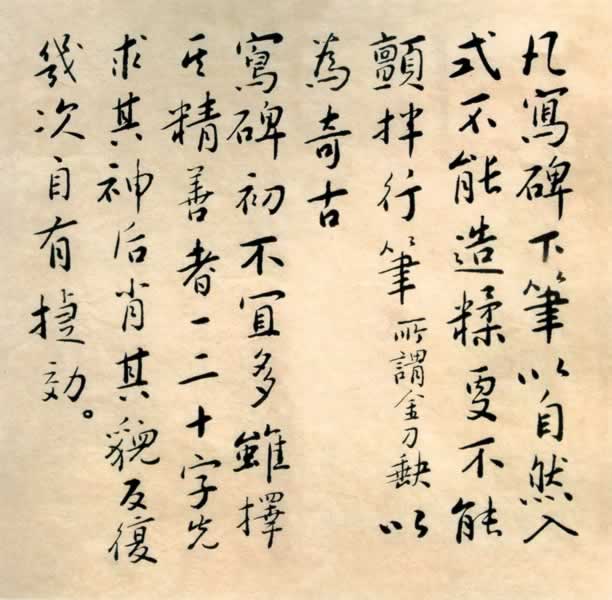 凡寫碑下筆以自然入
式不能造糅更不能
顫拌行筆所謂金刀缺以
為奇古
寫碑初不宜多雖擇
其精善者一二十字先
求其神后肖其貌反復
幾次自有捷効。